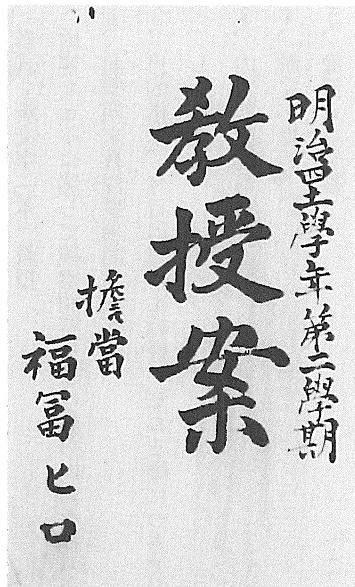 明治四十一學年第二學期
教授案
擔當
福冨ヒロ